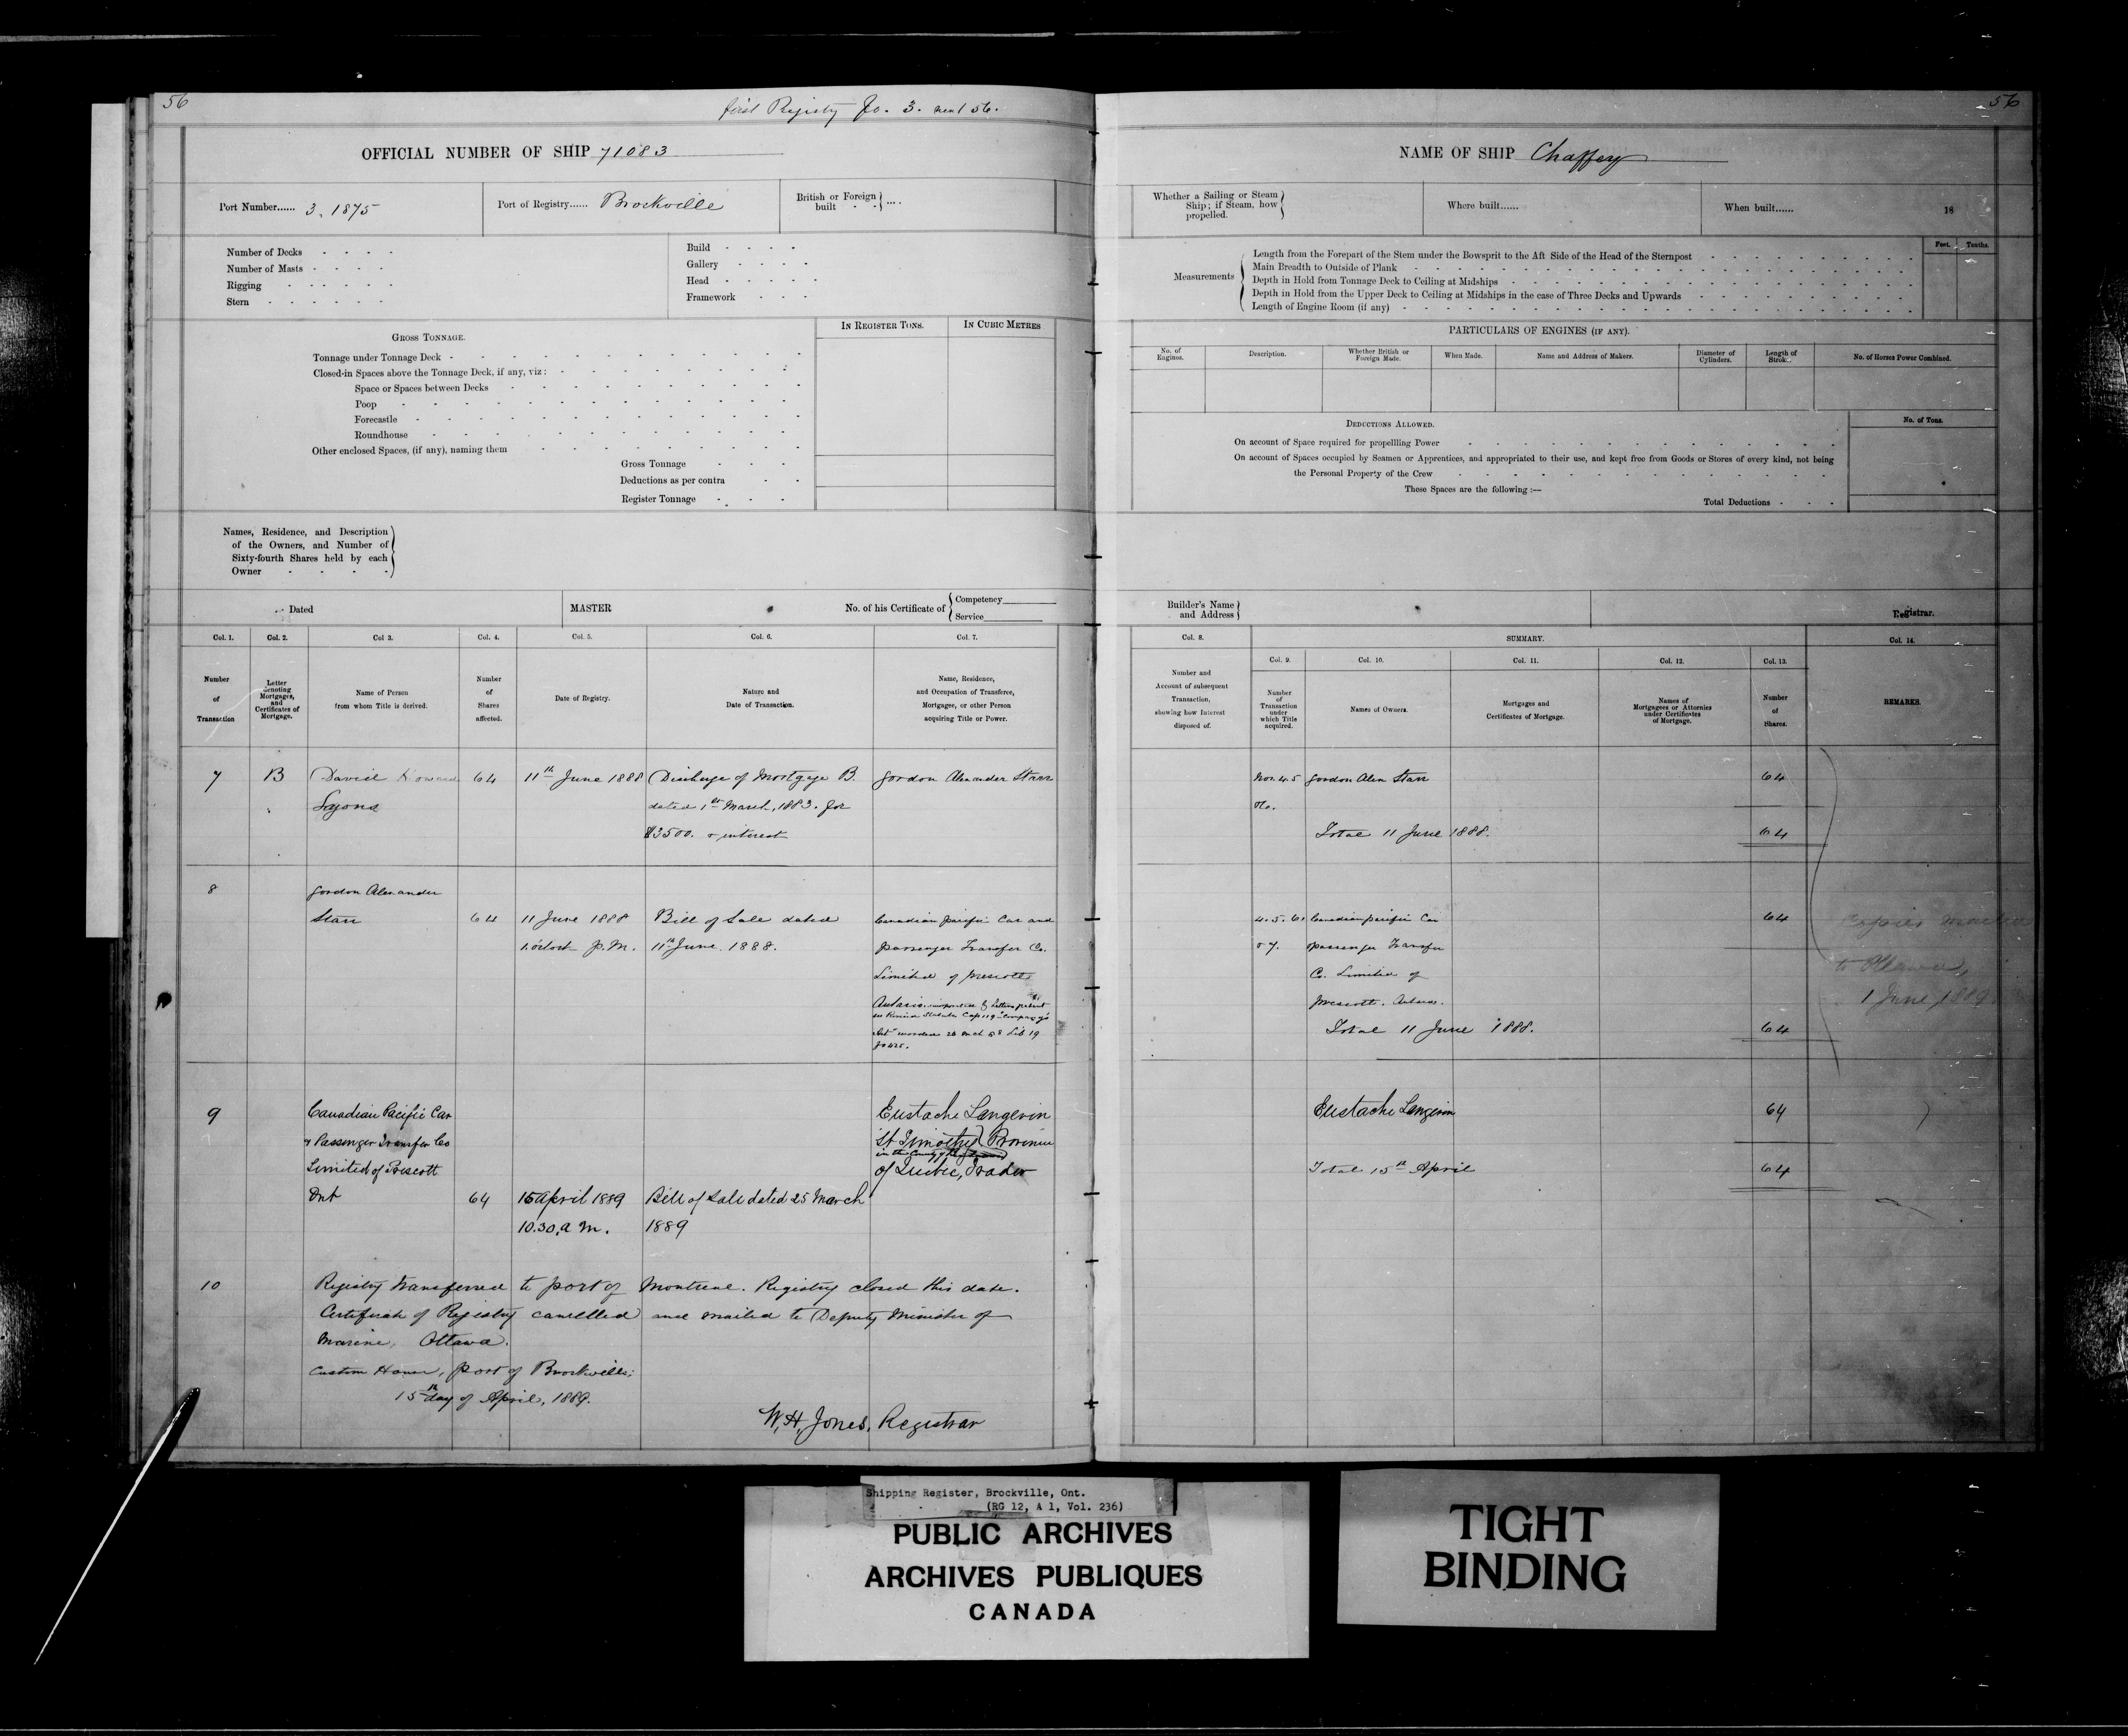 56
first Registry fo. 3. next 56.
OFFICIAL NUMBER OF SHIP 71083
Port Number...... 3. 1875
Port of Registry...... Brockville
British or Foreign built - - ....
Number of Decks
Number of Masts
Rigging
Stern
Build
Gallery
Head
Framework
GROSS TONNAGE.
IN REGISTER TONS.
IN CUBIC METRES
Tonnage under Tonnage Deck
Closed-in Spaces above the Tonnage Deck, if any, viz:
Space or Spaces between Decks
Poop
Forecastle
Roundhouse
Other enclosed Spaces, (if any), naming them
Gross Tonnage
Deductions as per contra
Register Tonnage
Names, Residence, and Description
of the Owners, and Number of
Sixty-fourth Shares held by each
Owner
Dated
MASTER
No. of his Certificate of
Competency
Service
Col. 1.
Col. 2.
Col 3.
Col. 4.
Col. 5.
Col. 6.
Col. 7.
Number
of
Transaction
Letter
denoting
Mortgages,
and
Certificates of
Mortgage.
Name of Person
from whom Title is derived.
Number
of
Shares
affected.
Date of Registry.
Nature and
Date of Transaction.
Name, Residence,
and Occupation of Transferee,
Mortgagee, or other Person
acquiring Title or Power.
7 B David Howard 64 11th June 1888 Discharge of Mortgage B. Gordon Alexander Starr
Lyons dated 1st March, 1883. for
$3500. & interest
8 Gordon Alexander
Starr 64 11 June 1888 Bill of Sale dated Canadian Pacific Car and
1. o'clock p.m. 11th June. 1888. Passenger Transfer Co.
Limited of Prescott
Ontario. incorporated by letters patent
Statutes Cap 119 "Company's
Act" recorded 26 Lib 19
fo 425.
9 Canadian Pacific Car Eustache Langevin
& Passenger Transfer Co St Timothy Province
in the County of
Limited of Prescott of Quebec, Trader
Ont 64 15 April 1889 Bill of Sale dated 25 March
10.30. a m. 1889
10 Registry transferred to port of Montreal. Registry closed this date.
Certificate of Registry cancelled and mailed to Deputy Minister of
Marine, Ottawa.
Custom House, port of Brockville;
15th day of April, 1889.
W. H. Jones, Registrar
56
NAME OF SHIP Chaffey
Whether a Sailing or Steam
Ship; if Steam, how
propelled.
Where built......
When built...... 18
Measurements
Length from the Forepart of the Stem under the Bowsprit to the Aft Side of the Head of the Sternpost
Main Breadth to Outside of Plank
Depth in Hold from Tonnage Deck to Ceiling at Midships
Depth in Hold from the Upper Deck to Ceiling at Midships in the case of Three Decks and Upwards
Length of Engine Room (if any)
Feet.
Tenths.
PARTICULARS OF ENGINES (IF ANY).
No. of
Engines.
Description.
Whether British or
Foreign Made.
When Made.
Name and Address of Makers.
Diameter of
Cylinders.
Length of
Strok..
No. of Horses Power Combined.
DEDUCTIONS ALLOWED.
No. of Tons.
On account of Space required for propellling Power
On account of Spaces occupied by Seamen or Apprentices, and appropriated to their use, and kept free from Goods or Stores of every kind, not being
the Personal Property of the Crew
These Spaces are the following :—
Total Deductions
Builder's Name
and Address
Registrar.
Col. 8.
SUMMARY.
Col. 14.
Col. 9.
Col. 10.
Col. 11.
Col. 12.
Col. 13.
Number and
Account of subsequent
Transaction,
showing how Interest
disposed of.
Number
of
Transaction
under
which Title
acquired.
Names of Owners.
Mortgages and
Certificates of Mortgage.
Names of
Mortgagees or Attornies
under Certificates
of Mortgage.
Number
of
Shares.
REMARKS.
Nos. 4. 5 Gordon Alex Starr 64
& 6.
Total 11 June 1888. 64
4. 5. 6. Canadian Pacific Car 64
& 7. & Passenger Transfer
Co. Limited of
Prescott. Ontario.
Total 11 June 1888. 64
Copies mailed
to Ottawa,
1 June, 1889
Eustache Langevin 64
Total 15th April 64
Shipping Register, Brockville, Ont.
(RG 12, A 1, Vol. 236)
PUBLIC ARCHIVES
ARCHIVES PUBLIQUES
CANADA
TIGHT
BINDING